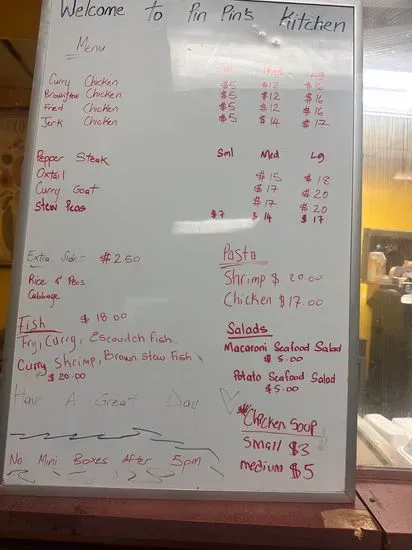 Welcome To Pin Pin's Kiitchen
Menu
Sml Med Lg
Curry Chicken $5 $12 $16
Brownstew Chicken $5 $12 $16
Fried Chicken $5 $12 $16
Jerk Chicken $5 $14 $17
Sml Med Lg
Pepper Steak
Oxtail $15 $18
Curry Goat $17 $20
Stew Peas $17 $20
$7 $14 $17
Extra Sides $2.50
Rice & Peas
Cabbage
Pasta
Shrimp $20.00
Chicken $17.00
Fish $18.00
Fry, Curry, Escovitch fish
Curry Shrimp, Brown Stew Fish
$20.00
Salads
Macaroni Seafood Salad
$5.00
Potato Seafood Salad
$5.00
Have A Great Day
Chicken Soup
Small $3
medium $5
No Mini Boxes After 5pm